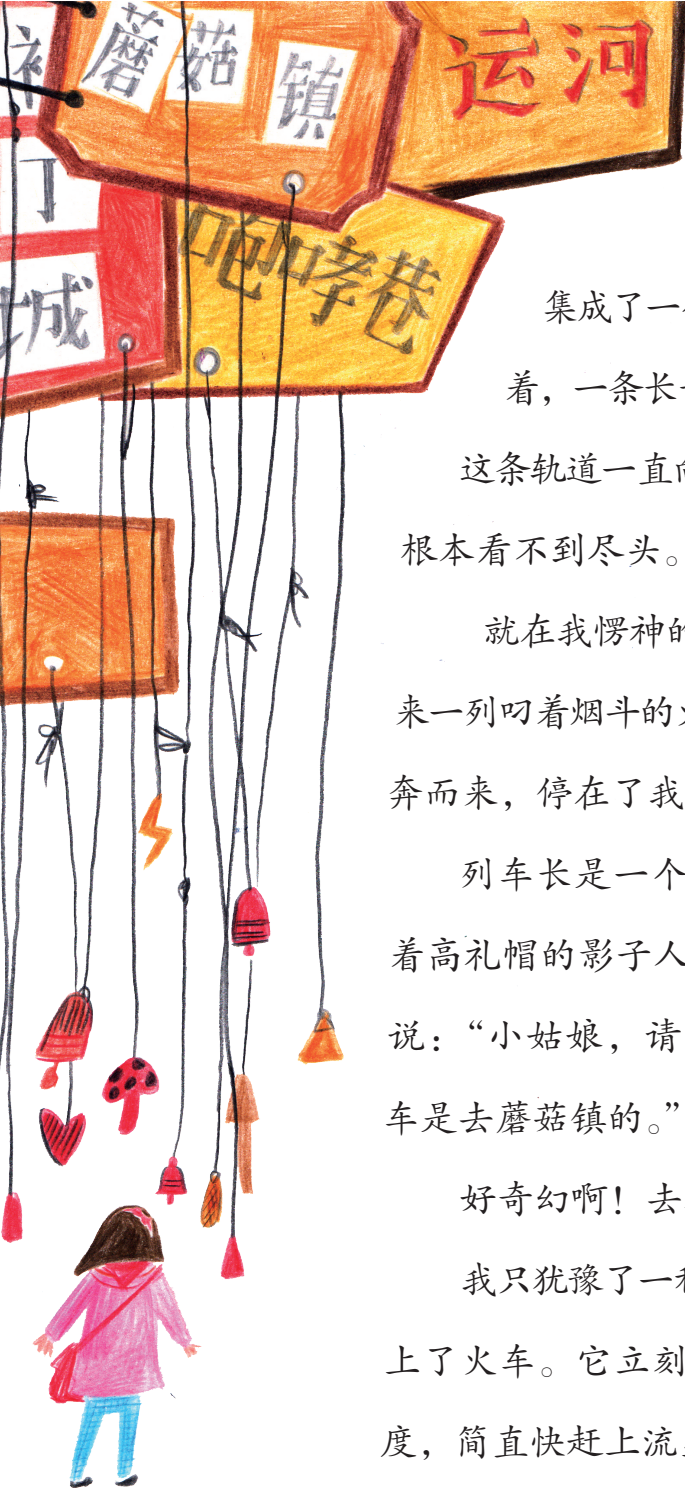 蘑菇镇
运河
咆哮巷
城
集成了一
着，一条长
这条轨道一直向
根本看不到尽头。
就在我愣神的
来一列叼着烟斗的火
奔而来，停在了我
列车长是一个
着高礼帽的影子人
说：“小姑娘，请
车是去蘑菇镇的。”
好奇幻啊！去
我只犹豫了一秒
上了火车。它立刻
度，简直快赶上流